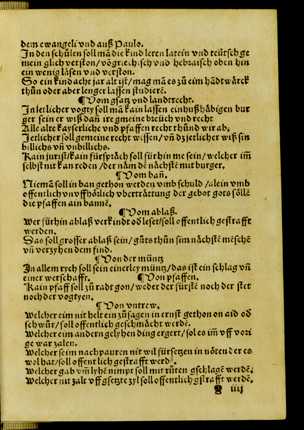 dem ewangeli vnd auß Paulo.
In den schůlen soll mā die kind leren latein vnd teütsch ge
mein glich verston/ vō griechisch vnd hebraisch oben hin
ein wenig läsen vnd verston.
So ein kind acht jar alt ist/ mag mā es zů eim hādtwārck
thůn oder aber lenger lassen studierē.
¶ Vom gsatz vnd landtrecht.
In ietlicher vogty soll mā kain lassen einhußhäbigen bur
ger sein er wiß dan ire gmeine breüch vnd recht
Alle alte kayserliche vnd pfaffen recht thůnd wir ab,
Jetlicher soll gemeine recht wissen/ vn̄ dz ietlicher wiß sin
billichs vn̄ vnbillichs.
Kain jurist/ kain fürspräch soll für hin me sein/ welcher im̄
selbst nit kan reden/ der nām dē nāchstē mit burger.
¶ Vom ban̄.
Niemā soll in ban gethon werden vmb schuld/ alein vmb
offentlich vn̄ vffōdlich vbertrāttung der gebot gots söllē
die pfaffen ain bannē.
¶ Vom ablaß.
Wer fürhin ablaß verkindt od leset/ soll offentlich gestrafft
werden.
Das soll grosser ablaß sein/ gůts thůn sim nāchstē mēschē
vn̄ verzyhen dem find.
¶ Von der müntz
In allem rych soll sein einerley müntz/ das ist ein schlag vn̄
einer wetschafft.
¶ Von pfaffen.
Kain pfaff soll zů radt gon/ weder der fürstē noch der stet
noch der vogtyen.
¶ Von vntrew.
Welcher eim nit helt ein zůsagen in ernst gethon on aid od
schwůr/ soll offentlich geschmächt werdē.
Welcher eim andern gelyhen ding ergert/ sol es im̄ vff vori
ge war zalen.
Welcher seim nachpauren nit wil fürsetzen in nöten der es
wol hat/ soll offentlich gestrafft werdē.
Welcher gab vm̄ lyhē nimpt soll mit růten gschlagē werdē,
Welcher nit zalt vff gsetzte zyl soll offentlich gestrafft werdē,
iiij